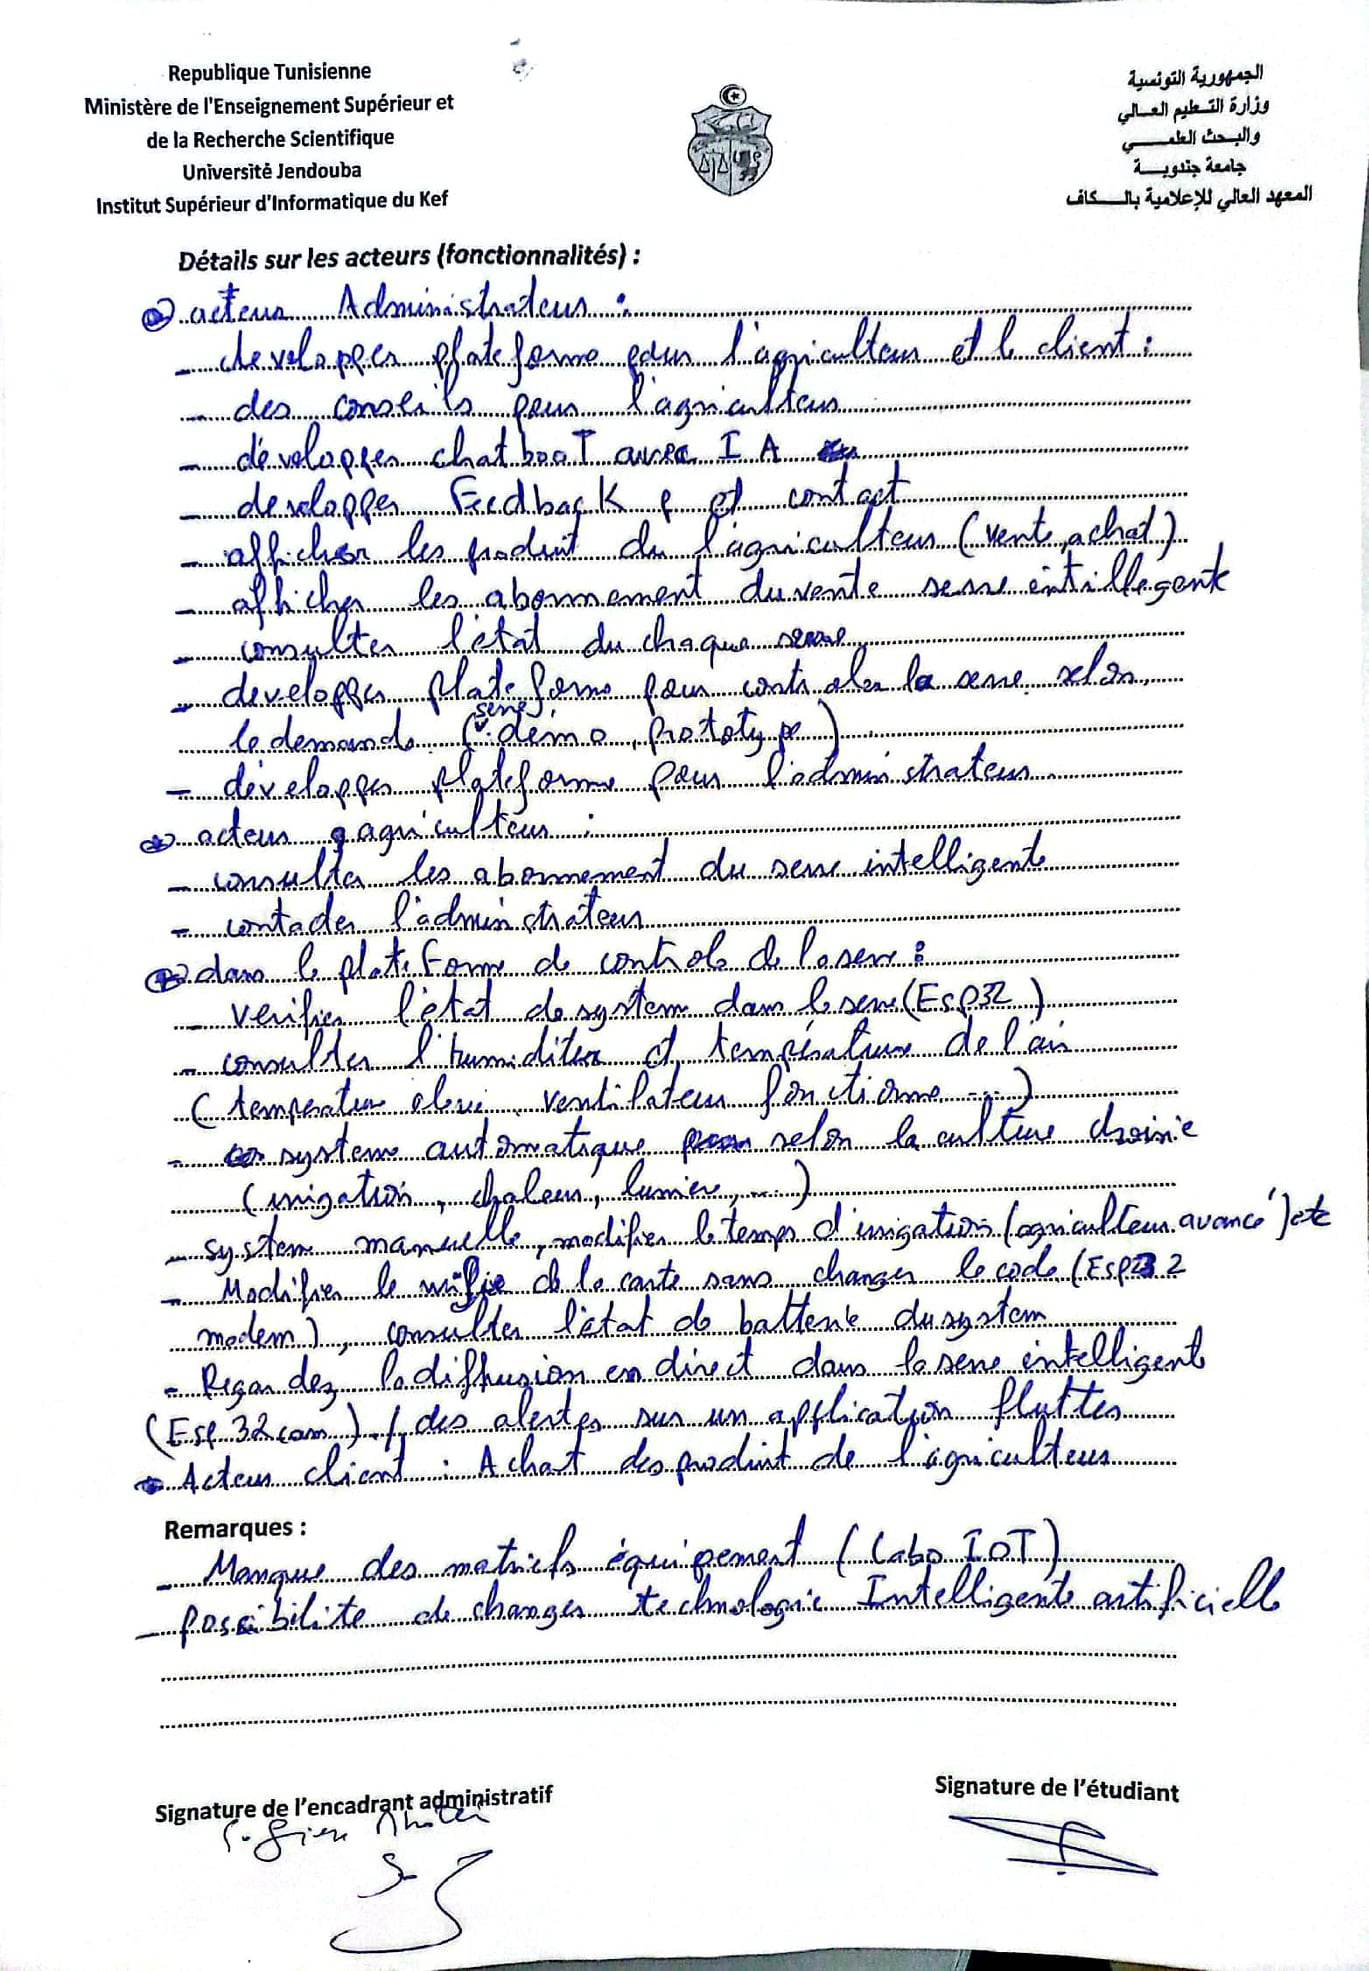 Republique Tunisienne
Ministère de l'Enseignement Supérieur et
de la Recherche Scientifique
Université Jendouba
Institut Supérieur d'Informatique du Kef
الجمهورية التونسية
وزارة التعليم العالي
والبحث العلمي
جامعة جندوبة
المعهد العالي للإعلامية بالكاف
Détails sur les acteurs (fonctionnalités) :
acteur Administrateur :
- developper plateforme pour l'agriculteur et le client :
- des conseils pour l'agriculteur
- développer chatbooT avec IA
- developper Feedback et contact
- afficher les produit du l'agriculteur (vente, achat)
- afficher les abonnement du vente serre intillegente
- consulter l'état du chaque serre
- developper plateforme pour controler la serre selon
le demande (serre démo, prototype)
- développer plateforme pour l'administrateur
acteur agriculteur :
- consulter les abonnement du serre intelligente
- contacter l'administrateur
dans le plateforme de controle de la serre :
- vérifier l'état de system dans le serre (Esp32)
- consulter l'humiditer et température de l'air
(temperature élevé, ventilateur fonctionne ....)
- systeme automatique selon la culture choisie
(irrigation, chaleur, lumière, ...)
- system manuelle, modifier le temps d'irrigation (agriculteur avancé) etc
- Modifier le wifi de la carte sans changer le code (Esp32
modem), consulter l'état de batterie du system
- Regardez la diffusion en direct dans la serre intelligent
(Esp 32 cam) / des alertes sur un application flutter
Acteur client : Achat des produit de l'agriculteur
Remarques :
- Manque des matriels équipement (Labo IOT)
- possibilité de changer technologie Intelligente artificielle
Signature de l'encadrant administratif
Signature de l'étudiant